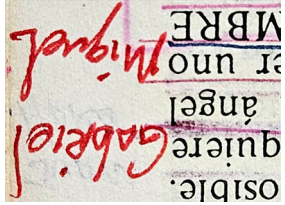 osible.
quiere
ángel
er uno
MBRE
Gabriel
Miguel